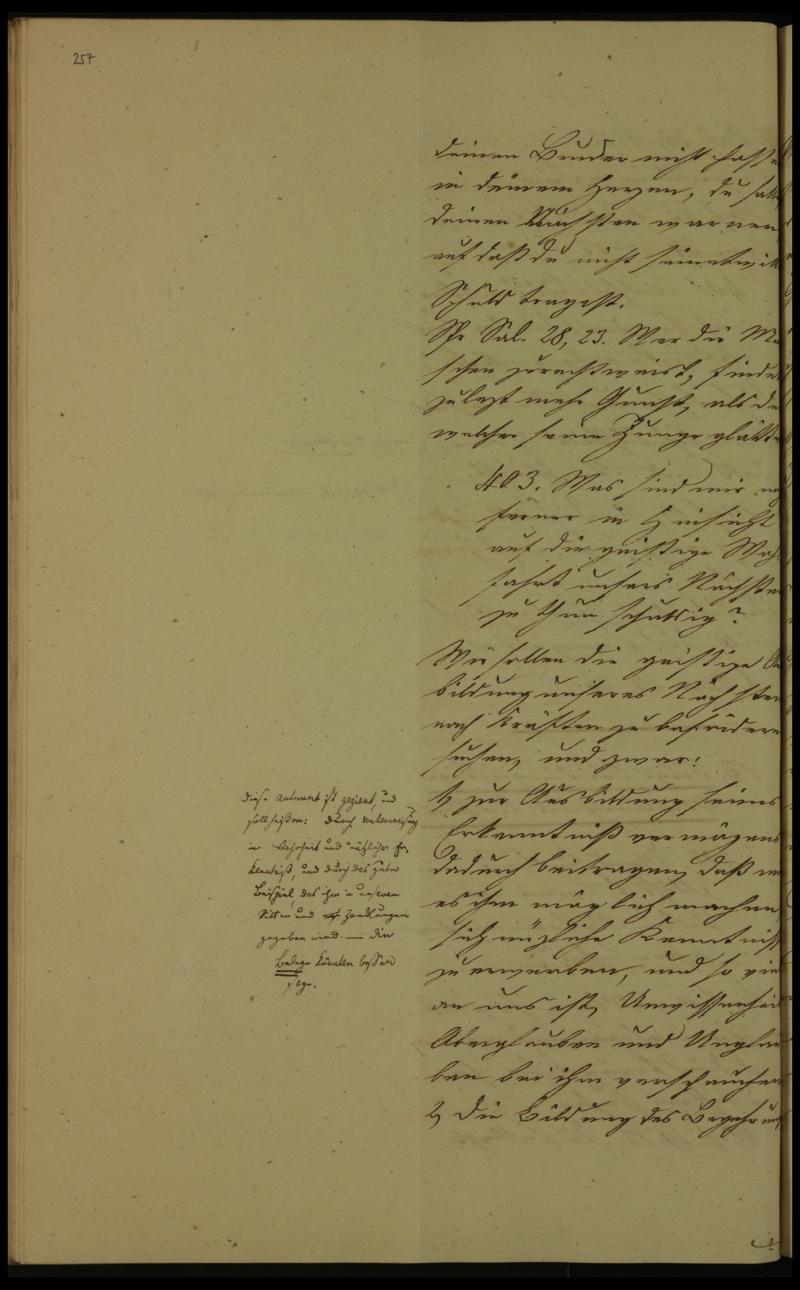 257
deinen Bruder nicht hasse
in deinem Herzen, du sollst
deinen Nächsten warnen
auf daß du nicht seinetwill
Schuld tragest.
Spr. Sal. 28, 23. Wer die Me
schen zurechtweist, findet
zulezt mehr Gunst, als de
welcher seine Zunge glätte
403. Was sind wir
ferner in Hinsicht
auf die geistige Wohl
fahrt unsers Nächsten
zu thun schuldig?
Wir sollen die geistige
bildung unseres Nächsten
nach Kräften zu befördern
suchen, und zwar:
1, zur Ausbildung seines
Erkenntnißvermögens
dadurch beitragen, daß wi
es ihm möglich machen
sich nüzliche Kenntniß
zu erwerben, und so viel
an uns ist, Unwissenheit
Aberglauben und Unglau
ben bei ihm verscheuchen
2, die Bildung des Begehrungs
diese Antwort ist geziert, und
soll heißen: durch Unterweisung
in Wahrheit und nützlicher Er,
kenntniß, und durch das gute
Beispiel, das ihm in unseren
Sitten und Handlungen
gegeben wird. — Die
Belege könnten besser
seyn.